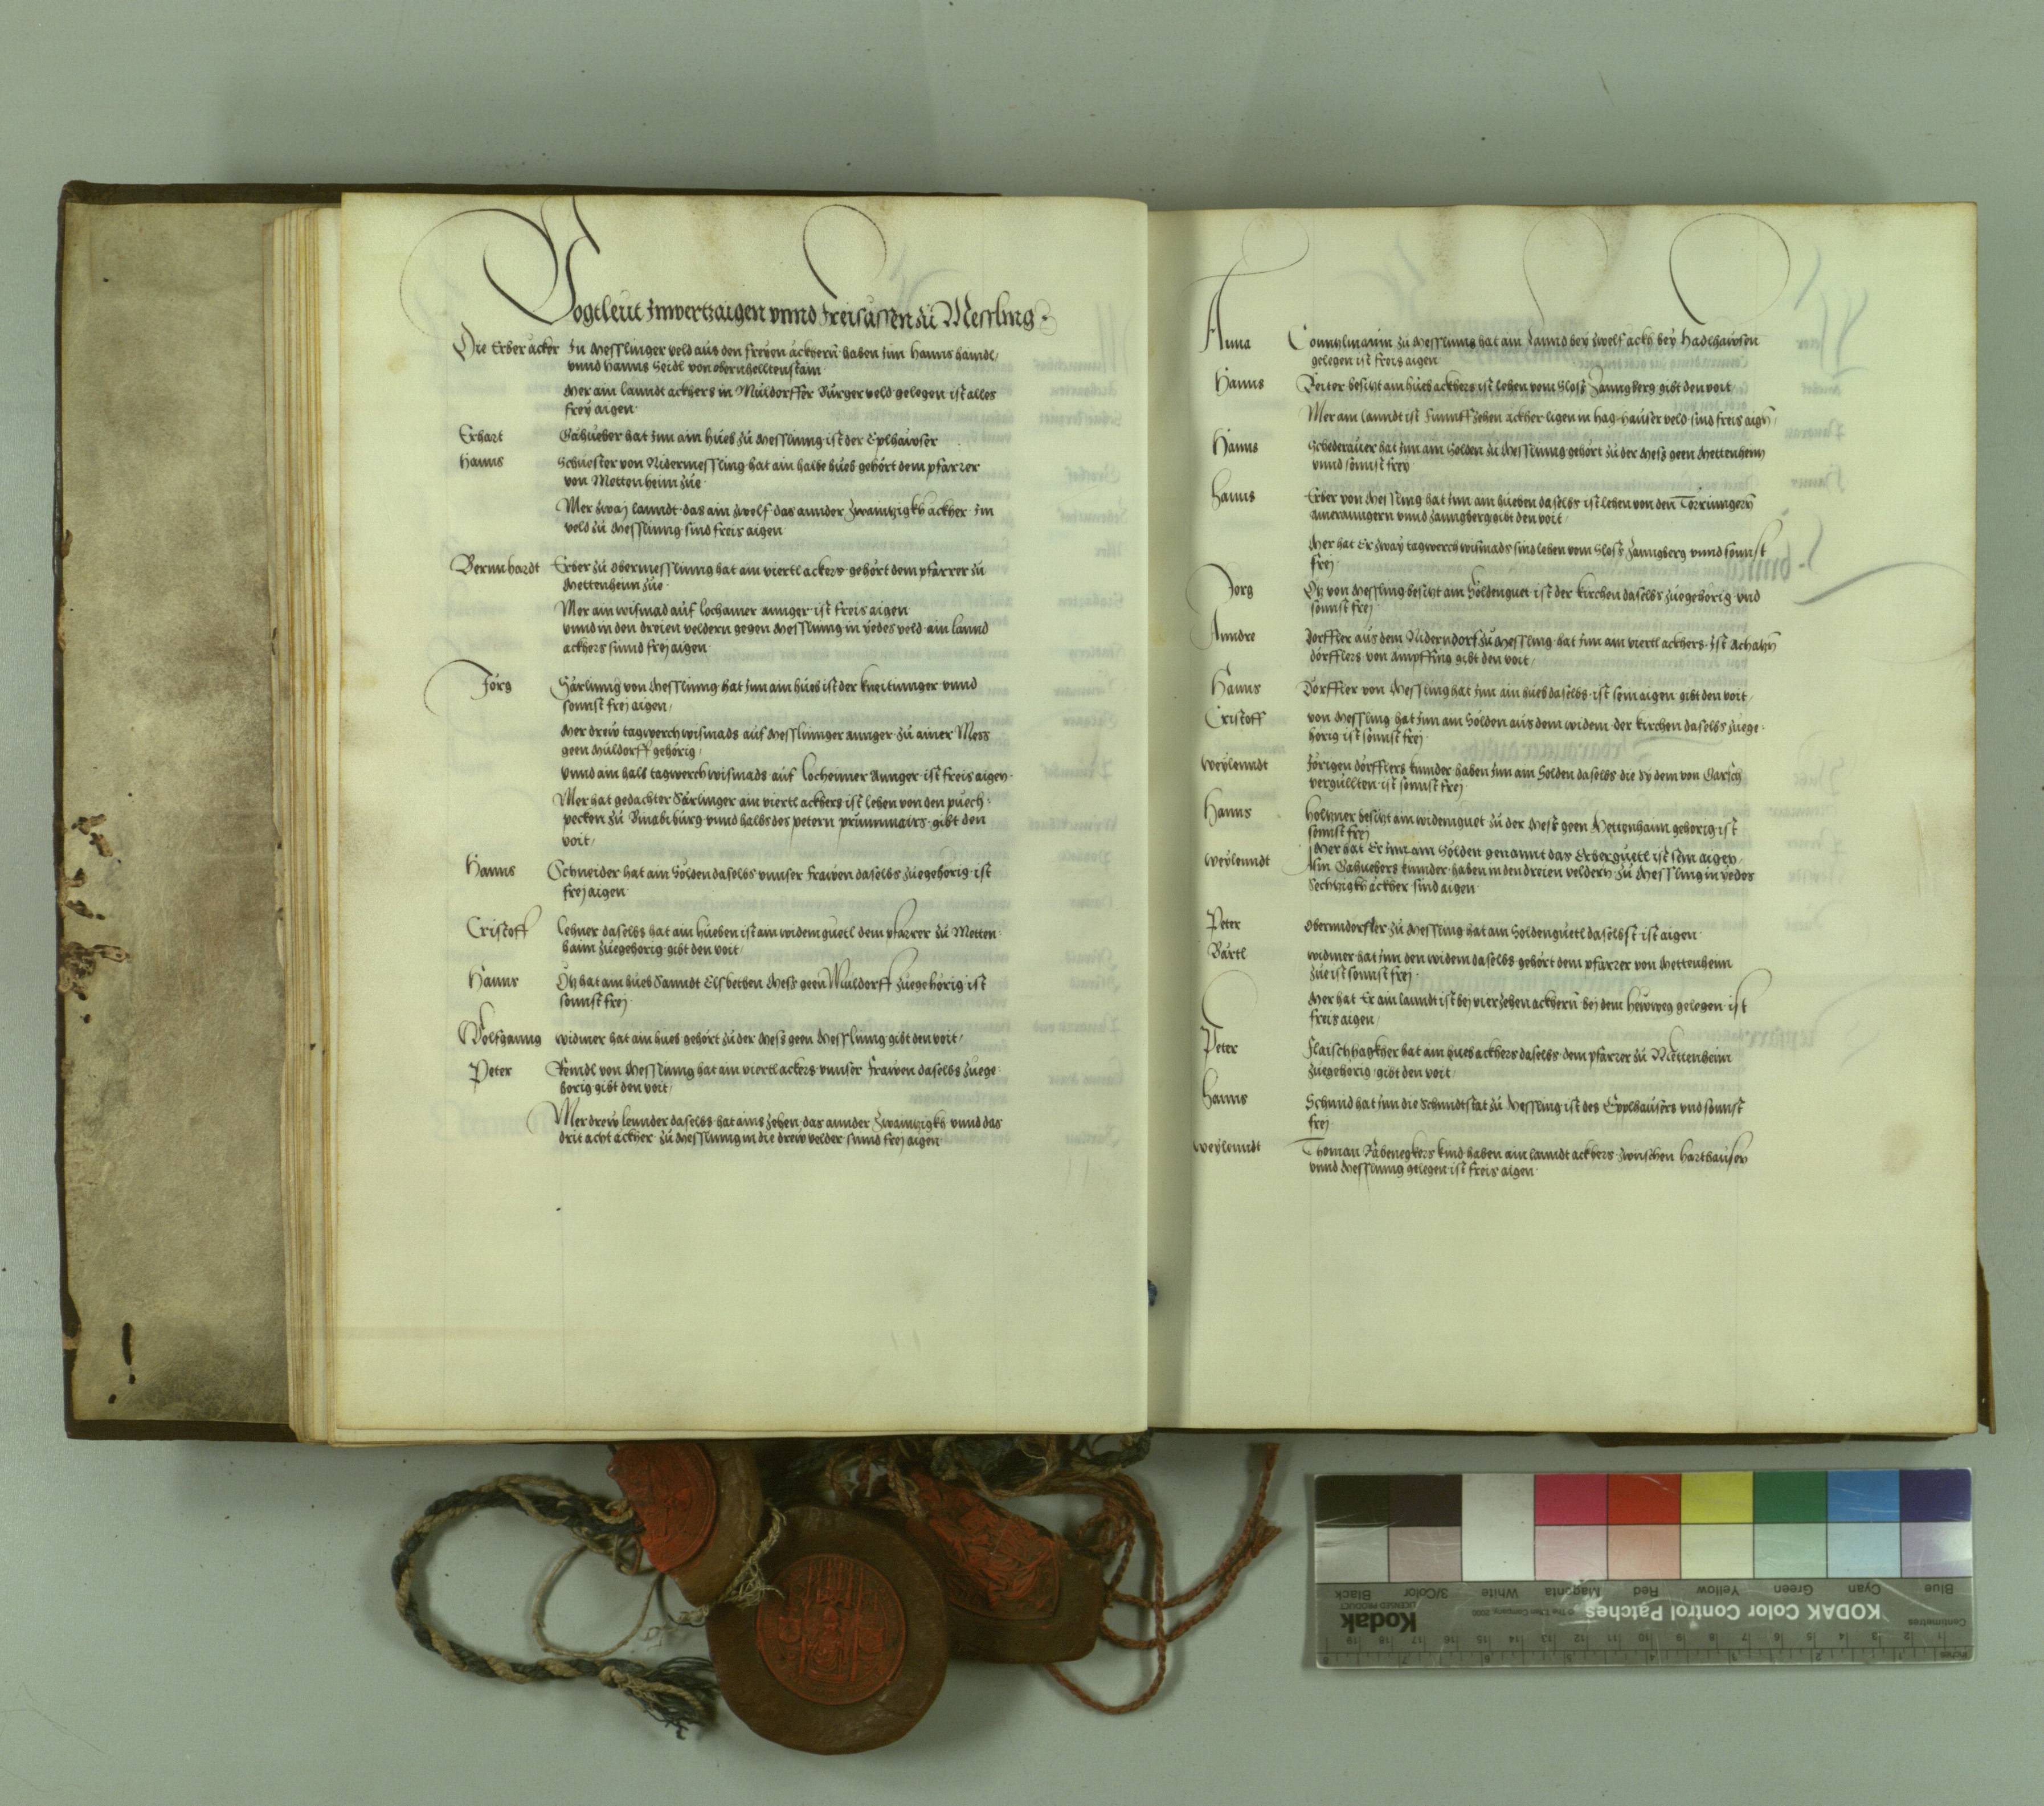 Vogtleut Inwertzaigen vnnd Freisässen zü Messling
Die Erber äcker In Messlinger veld aus den freyen äckhern haben Inn Hanns Haindl
vnnd Hanns Seidl von obernhelltenstain
Mer ain lanndt ackhers in Müldorffer Burger veld gelegen ist alles
frey aigen
Erhart Gähueber hat Inn ain hueb zü Messlinng ist der Eplhawser
Hanns Schuester von Nidermessling hat ain halbe hueb gehört dem pfarrer
von Mettenheim züe
Mer zwaj lanndt das ain zwelf das annder Zwaintzigkh ackher Im
veld zü Messlinng sind freis aigen
Bernnhardt Erber zü obermesslinng hat ain viertl ackers gehört dem pfarrer zü
Mettenheim züe
Mer ain wismad auf Lochamer annger ist freis aigen
vnnd in den dreien veldern gegen Messlinng in yedes veld ain lannd
ackhers sinnd frej aigen
Jörg Härlinng von Messlinng hat Inn ain hueb ist der kneitinnger vnnd
sonnst frej aigen
Mer drew tagwerch wismads auf Messlinnger annger zü ainer Mess
geen Müldorff gehörig
vnnd ain halb tagwerch wismads auf Locheimer Annger ist freis aigen
Mer hat gedachter Härlinger ain viertl ackhers ist lehen von den puech
pecken zü vnnd halbs des petern prünnmairs gibt den
voit
Hanns Schneider hat ain Sölden daselbs vnnser frawen daselbs züegehörig ist
frej aigen
Cristoff Lehner daselbs hat ain hueben ist ain widemguetl dem pfarrer zü Metten
haim züegehörig gibt den voit
Hanns Ötz hat ain hueb Sanndt Elsbethen Mess geen Müldorff züegehörig ist
sonnst frej
Wolfganng widmer hat ain hueb gehört zü der Mess geen Messlinng gibt den voit
Peter Remdl von Messlinng hat ain viertl ackers vnnser Frawen daselbs züege
horig gibt den voit
Mer drew lennder daselbs hat ains zehen das annder Zwaintzigkh vnnd das
drit acht ackher zü Messlinng in die drew velder sinnd frej aigen
Anna hat ain Lannd bey zwelf ackh bey Hadlhawsen
gelegen ist freis aigen
Hanns Reiter besitzt ain hueb ackhers ist lehen vom Sloss Zanngberg gibt den voit
Mer ain lanndt ist Funnffzehen ackher ligen in Haghauser veld sind freis aign
Hanns Schederauer hat Inn ain Solden zü Messlinng gehört zü der Mess geen Mettenheim
vnnd sonnst frey
Hanns Erber von Messling hat Inn ain hueben daselbs ist lehen von den Törringern
vnnd Zanngberg gibt den voit
Mer hat Er zway tagwerch wismads sind lehen vom Sloss Zanngberg vnnd sonnst
frej
Jorg Ötz von Messling besitzt ain Söldenguet ist der kirchen daselbs züegehörig vnd
sonnst frej
Anndre dorffler aus dem Niderndorf zü Messling hat Inn ain viertl ackhers Ist Achatzn
dörfflers von Ampffing gibt den voit
Hanns Dörffler von Messling hat Inn ain hueb daselbs ist sein aigen gibt den voit
Cristoff von Messling hat Inn ain Sölden aus dem widem der kirchen daselbs züege
hörig ist sonnst frej
Weylenndt Jörigen dörfflers kinnder haben Inn ain Sölden daselbs die Sy dem von Garsch
vergüllten ist sonnst frej
Hanns Holtzner besitzt ain widemguet zü der Mess geen Mettenhaim gehörig ist
sonnst frej
Mer hat Er Inn ain Sölden genannt das Erberguetl ist sein aigen
Weylenndt Gähuebers kinnder haben in den dreien veldern zü Messling in yedes
Sechtzigkh äckher sind aigen
Peter Oberndorffer zü Messling hat ain Soldenguetl daselbst ist aigen
Bärtl widmer hat Inn den widem daselbs gehört dem pfarrer von Mettenheim
züe ist sonnst frej
Mer hat Er ain lanndt ist bej vierzehen ackhern bej dem hewweg gelegen ist
freis aigen
Peter Flaischhagkher hat ain hueb ackhers daselbs dem pfarrer zü Mettenheim
züegehörig gibt den voit
Hanns Schmid hat Inn die Schmidtstat zü Messling ist des Epplhausers vnd sonnst
frej
Weylenndt Thoman Räbenegkers kind haben ain lanndt ackhers zwischen Harthausen
vnnd Messlinng gelegen ist freis aigen
KODAK Color Control Patches
Kodak
LICENSED PRODUCT
© The Tiffen Company, 2000
Blue Cyan Green Yellow Red Magenta White 3/Color Black
Centimetres
1 2 3 4 5 6 7 8 9 10 11 12 13 14 15 16 17 18 19
Inches
1 2 3 4 5 6 7 8